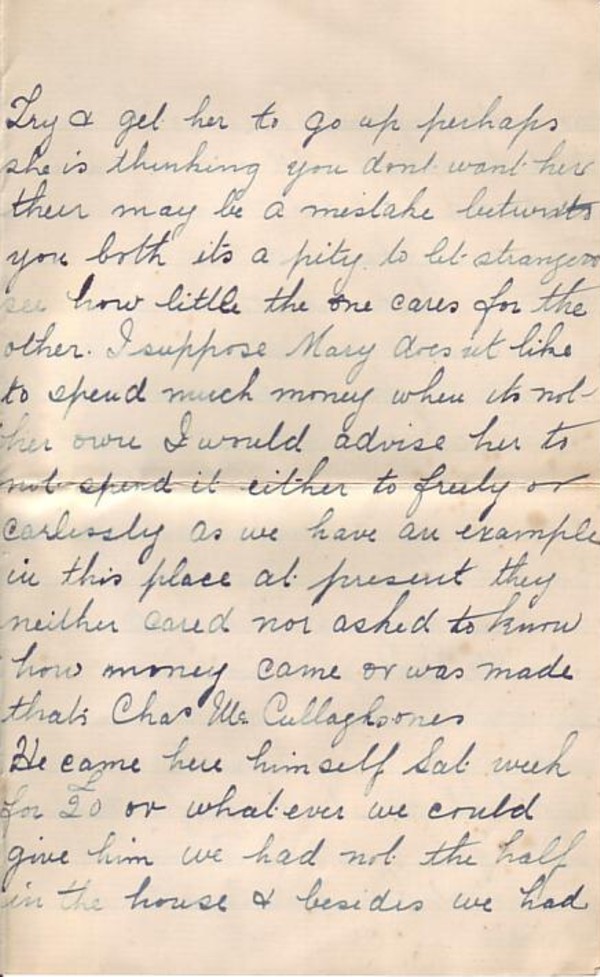 Try & get her to go up perhaps
she is thinking you dont want her
their may be a mistake betwixts
you both its a pity to let strangers
see how little the one cares for the
other. I suppose Mary does nt like
to spend much money when its not
her own I would advise her to
not spend it either to freely or
carlessly as we have an example
in this place at present they
neither cared nor asked to know
how money came or was made
thats Chas Mc Cullaghs ones
He came here himself Sat week
for £20 or whatever we could
give him we had not the half
in the house & besides we had